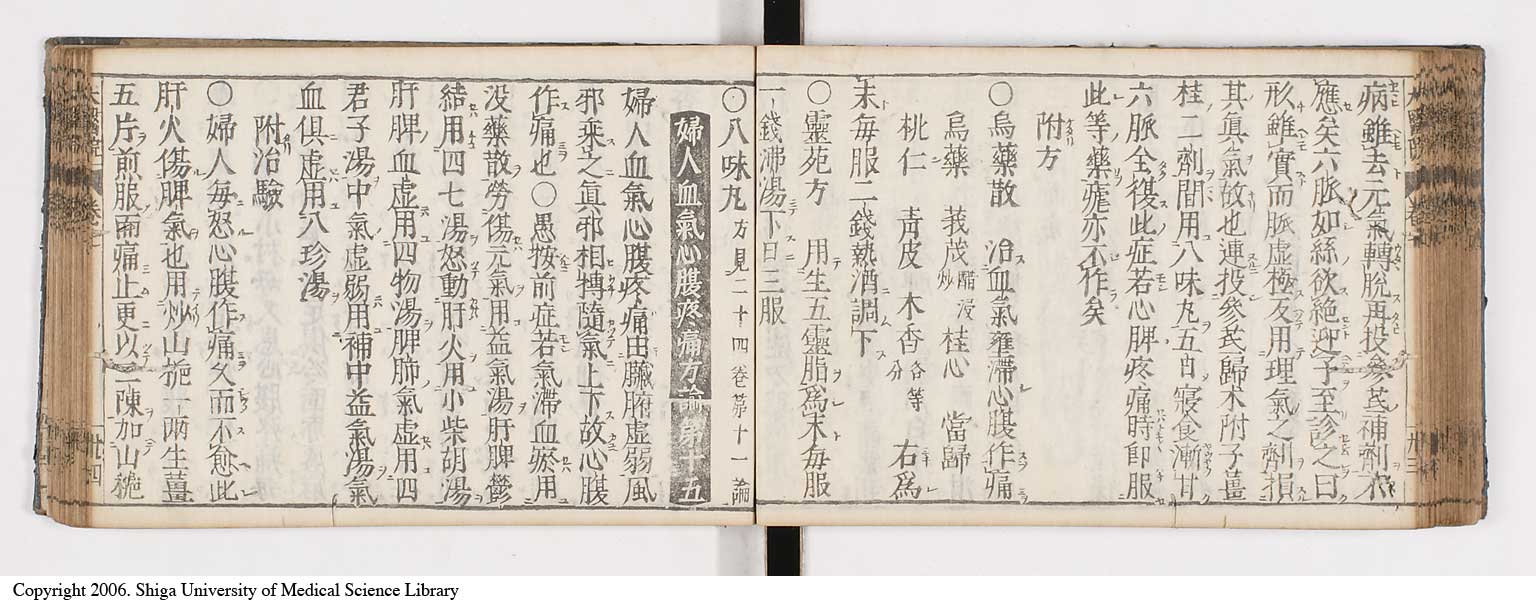 病雖去元氣轉脫再投參芪補劑不
應矣六脈如絲欲絶迎予至診之曰
形雖實而脈虛極反用理氣之劑損
其眞氣故也連投參芪歸木附子薑
桂二劑間用八味丸五日寢食漸甘
六脈全復此症若心脾疼痛時即服
此等藥瘧亦不作矣
附方
〇烏藥散 治血氣壅滯心腹作痛
烏藥 莪茂醋浸炒 桂心 當歸
桃仁 靑皮 木香各等分 右爲
末毎服二錢熱酒調下
〇靈苑方 用生五靈脂爲末毎服
一錢沸湯下日三服
〇八味丸 方見二十四卷第十一論
婦人血氣心腹疼痛方論第十五
婦人血氣心腹疼痛由臟腑虛弱風
邪乘之眞邪相摶隨氣上下故心腹
作痛也〇愚按前症若氣滯血瘀用
没藥散勞傷元氣用益氣湯肝脾鬱
結用四七湯怒動肝火用小柴胡湯
肝脾血虛用四物湯脾肺氣虛用四
君子湯中氣虛弱用補中益氣湯氣
血俱虛用八珍湯
附治驗
〇婦人毎怒心腹作痛久而不愈此
肝火傷脾氣也用炒山梔一兩生薑
五片煎服而痛止更以二陳加山梔
卷七
卅四
Copyright 2006. Shiga University of Medical Science Library